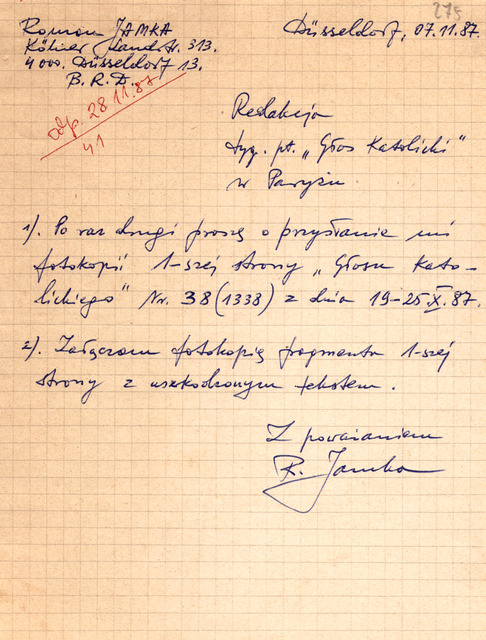 275
Roman JAMKA
Düsseldorf, 07.11.87.
Kölner Landstr. 313.
4000. Düsseldorf 13.
B. R. D.
odp. 28 11.87
41
Redakcja
tyg. pt. „Głos Katolicki"
w Paryżu.
1). Po raz drugi proszę o przysłanie mi
fotokopii 1-szej strony „Głosu Kato-
lickiego" Nr. 38 (1338) z dnia 19-25.X.87.
2). Załączam fotokopię fragmentu 1-szej
strony z uszkodzonym tekstem.
Z poważaniem
R. Jamka